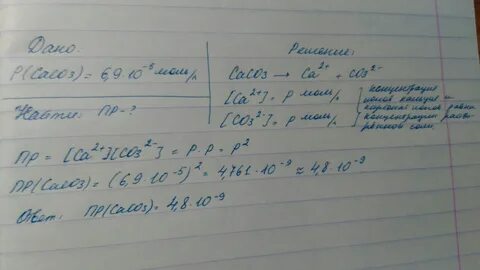 Дано:
P(CaCO3) = 6,9·10⁻⁵ моль/л
Найти: ПР-?
Решение:
CaCO3 → Ca²⁺ + CO3²⁻
[Ca²⁺] = P моль/л
[CO3²⁻] = P моль/л
концентрация
ионов кальция и
карбонат ионов равна
концентрации раство-
ренной соли.
ПР = [Ca²⁺][CO3²⁻] = P·P = P²
ПР(CaCO3) = (6,9·10⁻⁵)² = 4,761·10⁻⁹ ≈ 4,8·10⁻⁹
Ответ: ПР(CaCO3) = 4,8·10⁻⁹